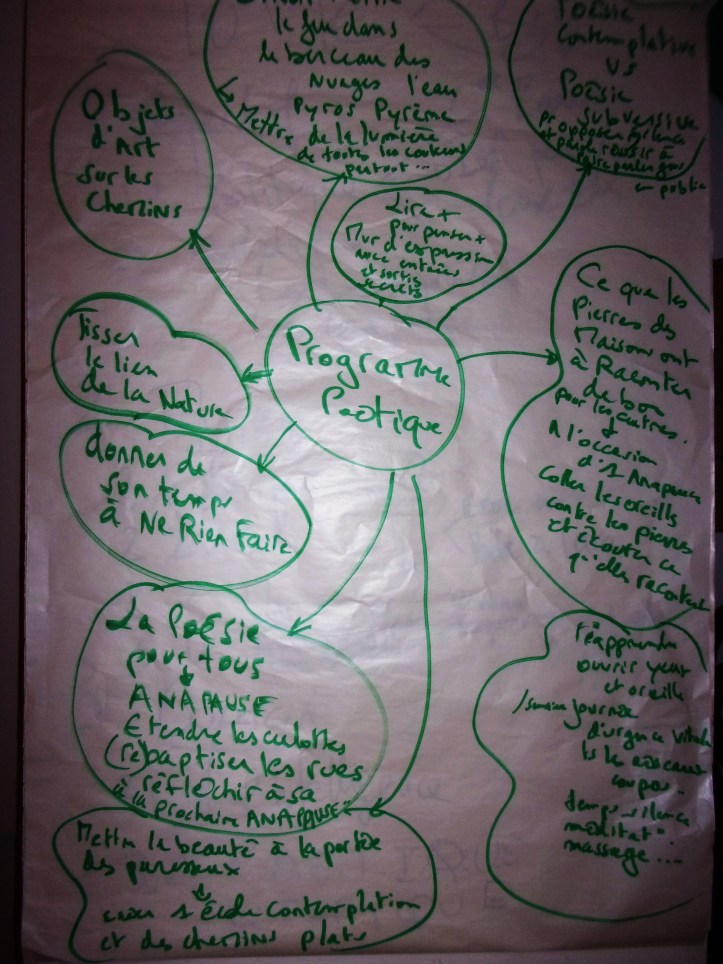 le feu dans
le berceau des
Nuages l'eau
Pyros, Pyrème
↳ Mettre de la lumière
de toutes les couleurs
partout...
Poésie
Contemplative
VS
Poésie
subversive
proposer silence
en public
Objets
d'Art
sur les
Chemins
Lire +
pour penser +
Mur d'expression
avec entrées
et sorties
secrets
Programme
Poétique
Tisser
le lien
de la Nature
donner de
son temps
à Ne Rien Faire
Ce que les
Pierres des
Maisons ont
à Raconter
de bon
pour les autres.
+
A l'occasion
d'1 Anapause
Coller les oreilles
contre les pierres
et écouter ce
qu'elles racontent
La Poésie
pour tous
↓
ANAPAUSE
Etendre les culottes
(re)baptiser les rues
réflOchir à sa
à la prochaine ANAPAUSE..
réapprendre
ouvrir yeux
et oreille
/semaine journée
d'urgence vitale
corps..
temps, silence
méditat°
massage...
Mettre la beauté à la portée
des paresseux
↓
créer 1 École contemplation
et des chemins plats